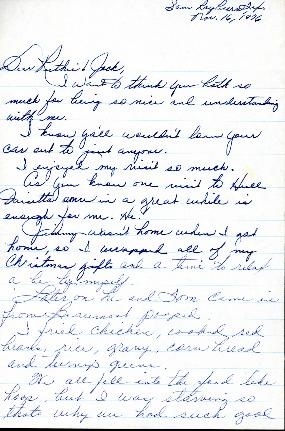 Nov. 16, 1996
Dear Ruthie & Jack,
I want to thank you both so
much for being so nice and understanding
with me.
I know ya'll wouldn't loan your
car out to just anyone.
I enjoyed my visit so much.
As you know one visit to Hill
once in a great while is
enough for me. He!
Johnny wasn't home when I got
home, so I wrapped all of my
Christmas gifts and a time to relax
a be by myself.
Later on he and Tom came in
from Beaumont pooped.
I fried chicken, cooked red
beans, rice, gravy, corn bread
and turnip greens.
We all fell into the food like
hogs, but I was starving so
that's why we had such good